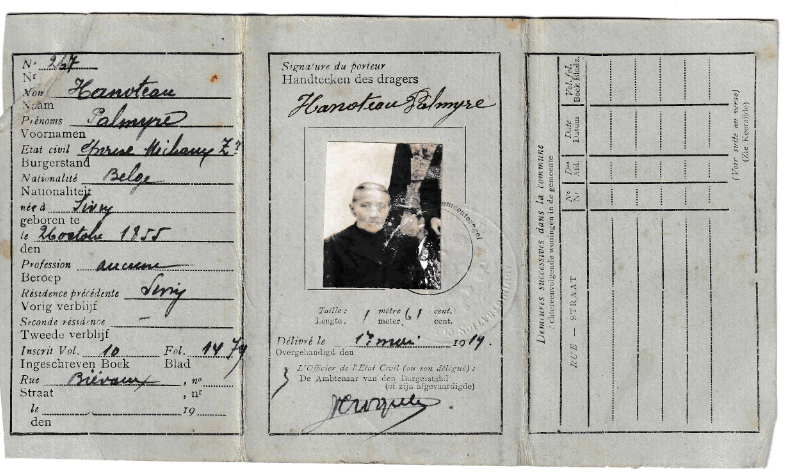 N° 267
Nr
Nom Hanoteau
Naam
Prénoms Palmyre
Voornamen
Etat civil Epouse Michaux Z?
Burgerstand
Nationalité Belge
Nationaliteit
née à Sivry
geboren te
le 26 octobre 1855
den
Profession aucune
Beroep
Résidence précédente Sivry
Vorig verblijf
Seconde résidence —
Tweede verblijf
Inscrit Vol. 10 Fol. 1479
Ingeschreven Boek Blad
Rue , n°
Straat , nr
le 19
den
Signature du porteur
Handteeken des dragers
Hanoteau Palmyre
Taille : 1 mètre 61 cent.
Lengte. meter, cent.
Délivré le 17 mai 1919.
Overgehandigd den
L'Officier de l'Etat Civil (ou son délégué) :
De Ambtenaar van den Burgerstand
(of zijn afgevaardigde)
Demeures successives dans la commune
Achtereenvolgende woningen in de gemeente
N° Nr
Du
Date Datum
Vol. fol.
Boek Bladz.
RUE — STRAAT
(Voir suite au verso)
(Zie Keerzijde)